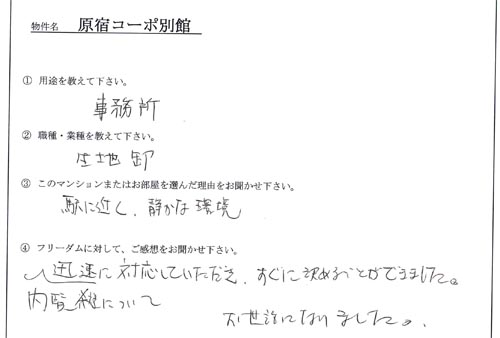 物件名 原宿コーポ別館
① 用途を教えて下さい。
事務所
② 職種・業種を教えて下さい。
生地卸
③ このマンションまたはお部屋を選んだ理由をお聞かせ下さい。
駅に近く、静かな環境
④ フリーダムに対して、ご感想をお聞かせ下さい。
迅速に対応していただき、すぐに決めることができました。
内覧 について
お世話になりました。